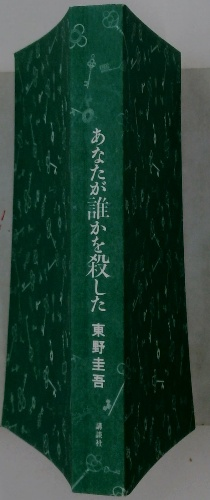 あなたが誰かを殺した 東野圭吾 講談社